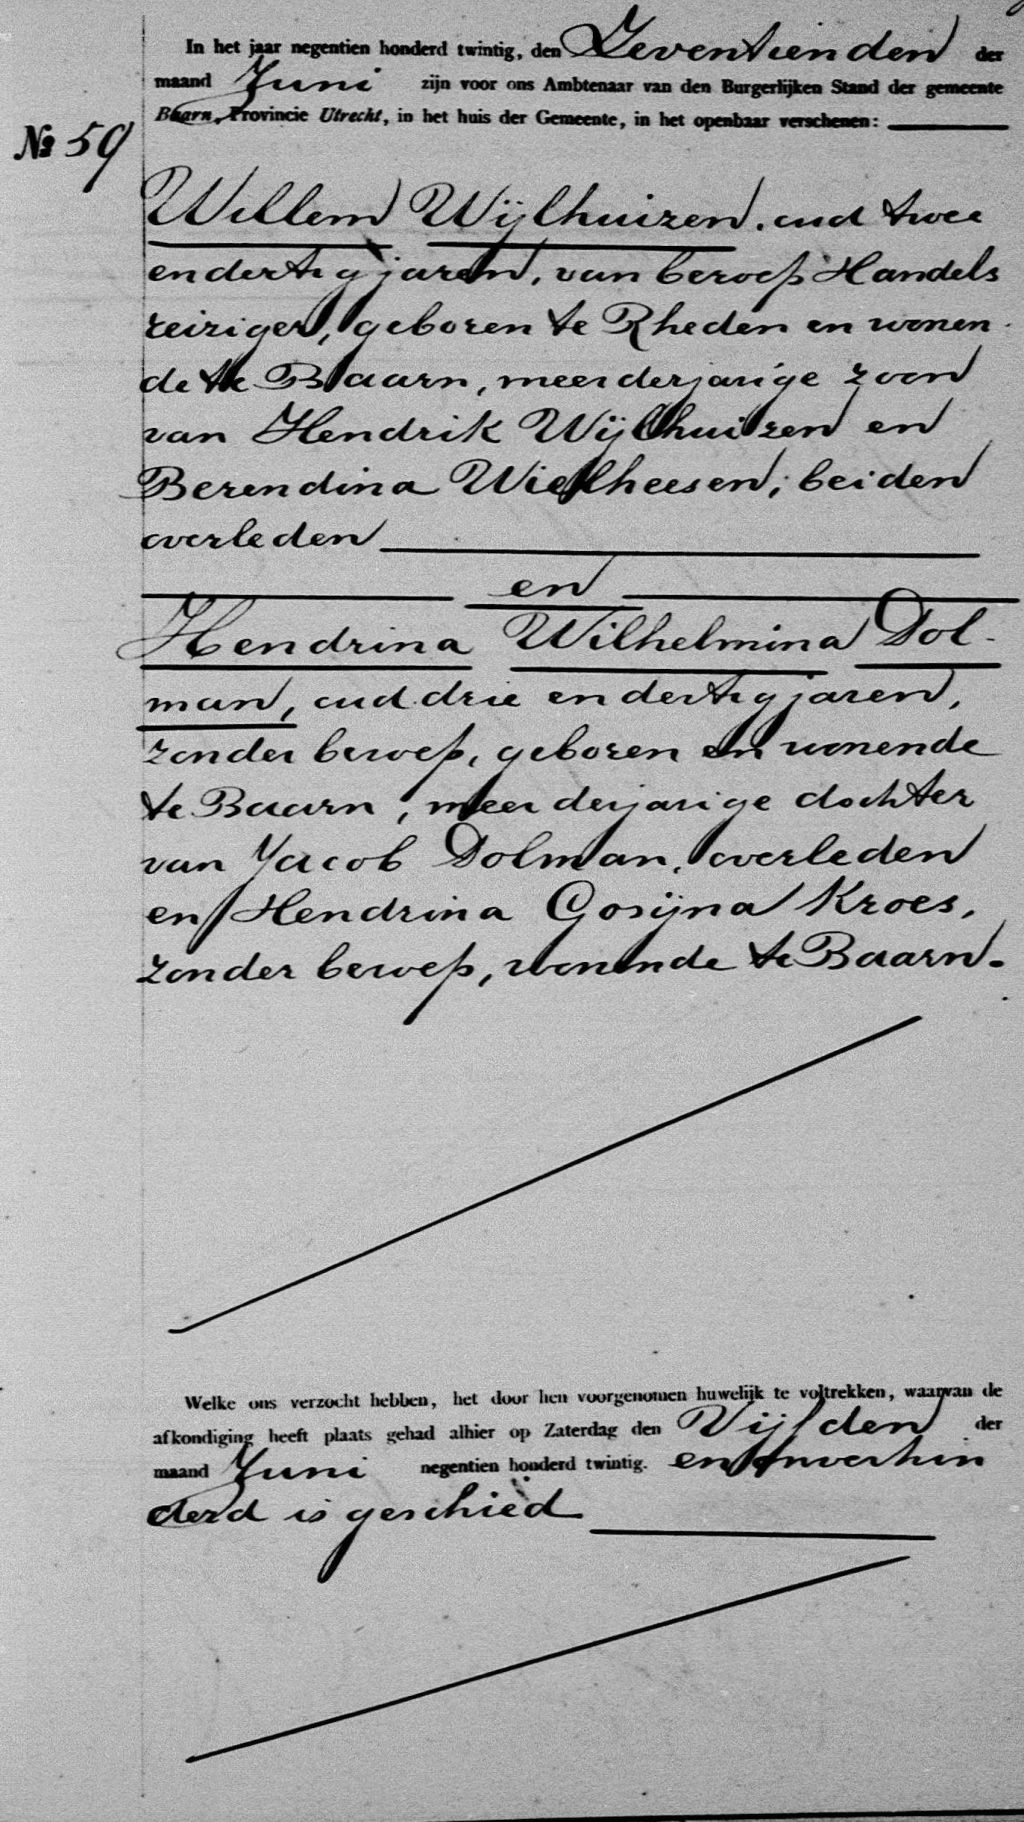 In het jaar negentien honderd twintig, den Zeventienden der
maand Juni zijn voor ons Ambtenaar van den Burgerlijken Stand der gemeente
Baarn, Provincie Utrecht, in het huis der Gemeente, in het openbaar verschenen:
№ 59
Willem Wijlhuizen, oud twee
en dertig jaren, van beroep Handels
reiziger, geboren te Rheden en wonen-
de te Baarn, meerderjarige zoon
van Hendrik Wijlhuizen en
Berendina Wielheesen, beiden
overleden
en
Hendrina Wilhelmina Dol-
man, oud drie en dertig jaren,
zonder beroep, geboren en wonende
te Baarn, meerderjarige dochter
van Jacob Dolman, overleden
en Hendrina Gosijna Kroes,
zonder beroep, wonende te Baarn.
Welke ons verzocht hebben, het door hen voorgenomen huwelijk te voltrekken, waarvan de
afkondiging heeft plaats gehad alhier op Zaterdag den Vijfden der
maand Juni negentien honderd twintig. en onverhin
derd is geschied